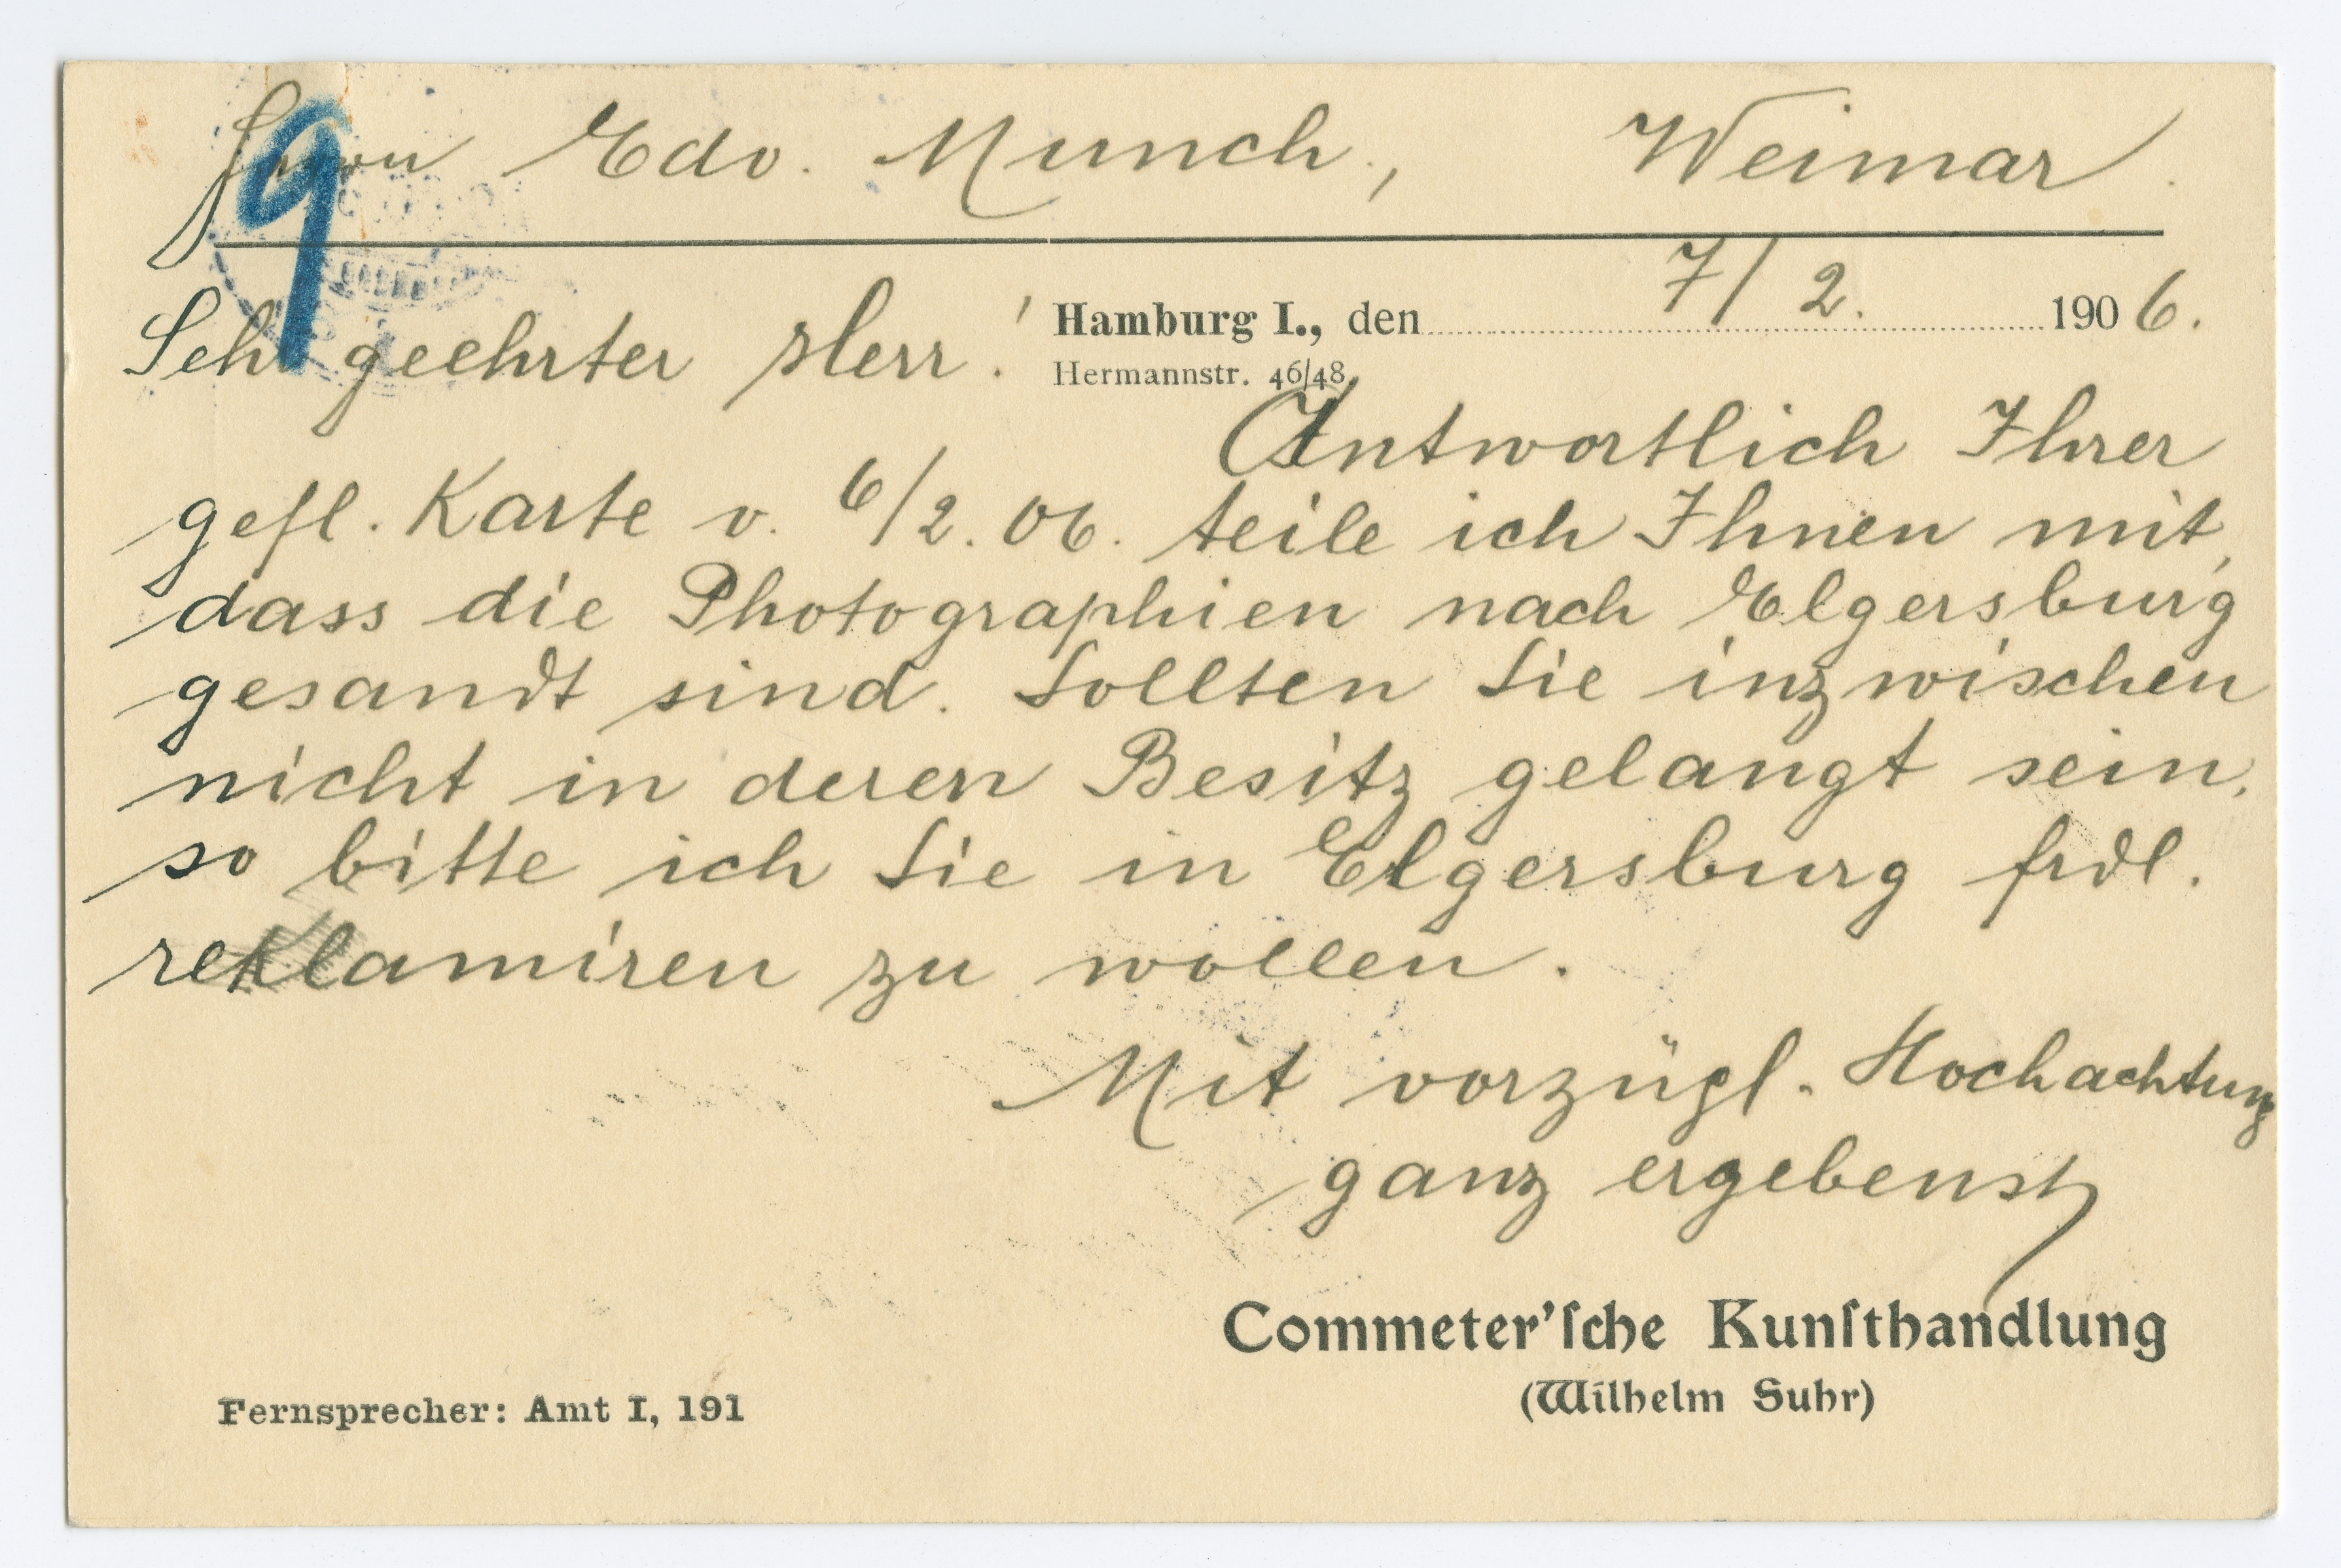 Herrn Edv. Munch, Weimar.
Hamburg I., den 7/2. 1906.
Hermannstr. 46/48.
Sehr geehrter Herr!
Antwortlich Ihrer
gefl. Karte v. 6/2. 06. teile ich Ihnen mit,
dass die Photographien nach Elgersburg
gesandt sind. Sollten Sie inzwischen
nicht in deren Besitz gelangt sein,
so bitte ich Sie in Elgersburg frdl.
reklamiren zu wollen.
Mit vorzügl. Hochachtung
ganz ergebenst
Commeter'ſche Kunſthandlung
(Wilhelm Suhr)
Fernsprecher: Amt I, 191
9